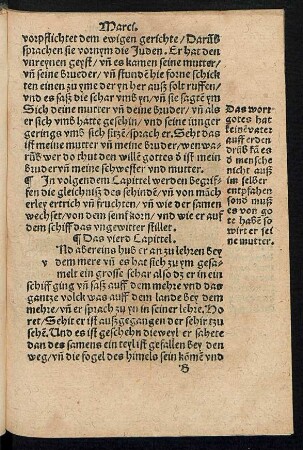 Marci.
vorpflichtet dem ewigen gerichte/ Darũb
sprachen sie vor nym die Juden. Er hat den
vnreynen geyst/ vñ es kamen seine mutter/
vñ seine brueder/ vñ stundẽ hie forne schickt
ten einen zu yme der yn her auß solt ruffen/
vnd es saß die schar vmb yn/ vñ sie sagtẽ ym
Sich deine mutter vñ deine bruder/ vñ als er
sich vmb hatte gesehin/ vnd seine iunger
gerings vmb sich sitzẽ/ sprach er. Seht das
ist meine mutter vñ meine bruder/ wen wa
rũb wer do thut den willẽ gottes ð ist mein
bruder vñ meine schwester vnd mutter.
¶ In volgendem Capittel werden begrif
fen die gleichniß des sehindẽ/ vnd von mäch
erley ertrich vñ fruchtẽ/ vñ wie der samen
wechset/ von dem senf korn/ vnd wie er auf
dem schiff das vngewitter stillet.
¶ Das vierd Capittel.
No abereins hub er an zu lehren bey
dem mere vñ es hat sich zu ym gesa
melt ein grosse schar also dz er in ein
schif ging vñ saß auff dem mehre vnd das
gantze volck was auff dem lande bey dem
mehre/ vñ er sprach zu yn in seiner lehre. Ho
ret/ Sehit er ist außgegangen der sehir tzu
sehẽ. Und es ist gescheen die weyl er sahete
das des samens ein teyl ist gefallen bey den
weg/ vñ die fogel des himels sein komẽ vnd
B
Das wort
gottes hat
keinẽ vater
auff erden
drũb kã es
ð mensche
nicht auß
im selber
entpfahen
sond muß
es von go
te habẽ so
wirt er sei
ne mutter.